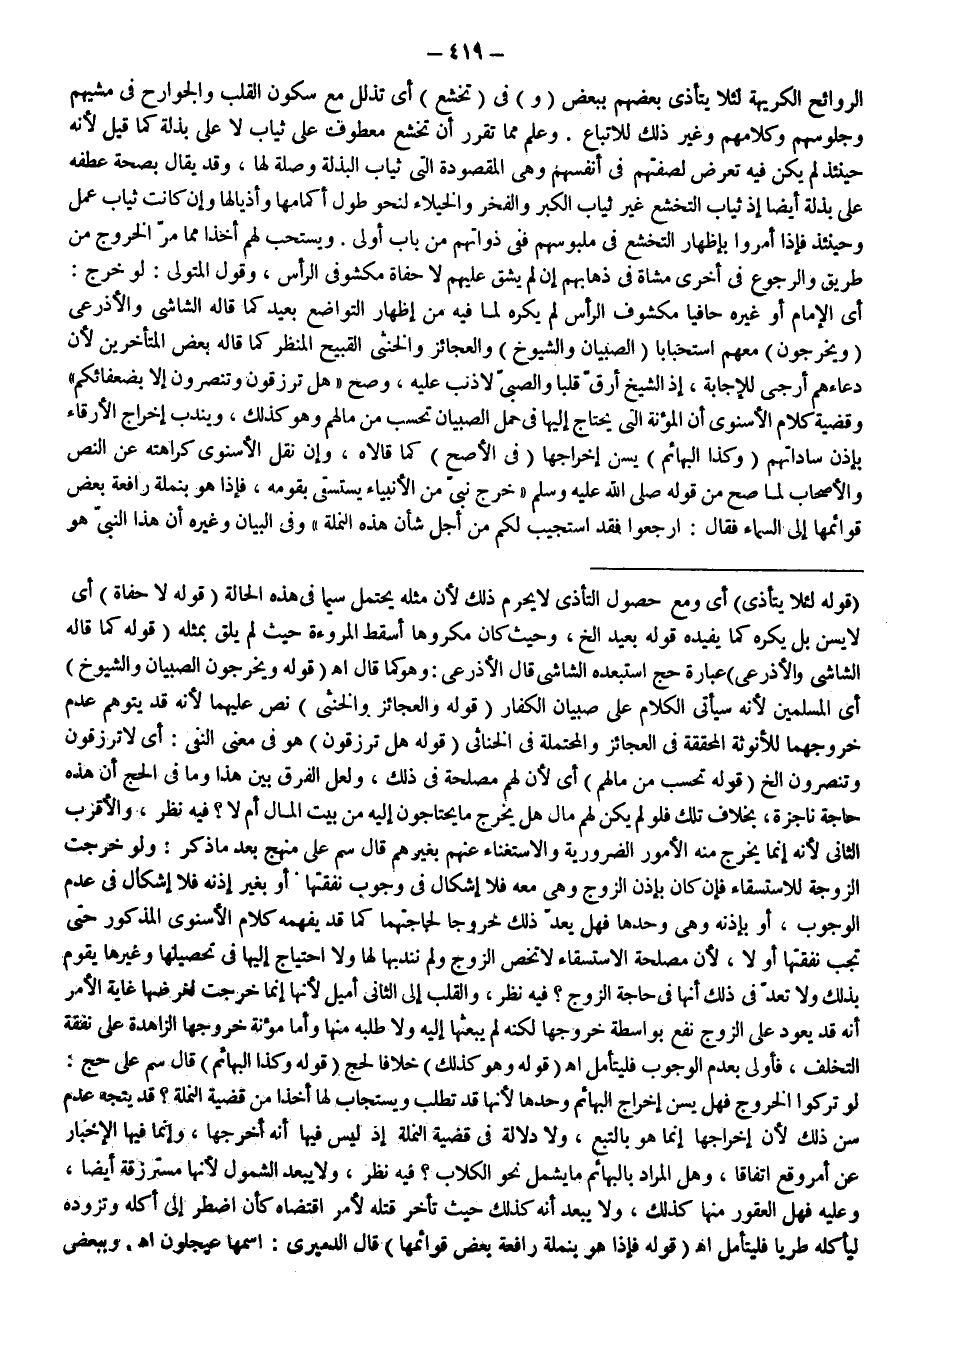 – ٤١٩ –
الروائح الكريهة لئلا يتأذى بعضهم ببعض ( و ) فى ( تخشع ) أى تذلل مع سكون القلب والجوارح فى مشيهم
وجلوسهم وكلامهم وغير ذلك للاتباع . وعلم مما تقرر أن تخشع معطوف على ثياب لا على بذلة كما قيل لأنه
حينئذ لم يكن فيه تعرض لصفتهم فى أنفسهم وهى المقصودة التى ثياب البذلة وصلة لها ، وقد يقال بصحة عطفه
على بذلة أيضا إذ ثياب التخشع غير ثياب الكبر والفخر والخيلاء لنحو طول أكمامها وأذيالها وإن كانت ثياب عمل
وحينئذ فإذا أمروا بإظهار التخشع فى ملبوسهم ففى ذواتهم من باب أولى . ويستحب لهم أخذا مما مرّ الخروج من
طريق والرجوع فى أخرى مشاة فى ذهابهم إن لم يشق عليهم لا حفاة مكشوفى الرأس ، وقول المتولى : لو خرج :
أى الإمام أو غيره حافيا مكشوف الرأس لم يكره لمـا فيه من إظهار التواضع بعيد كما قاله الشاشى والأذرعى
( ويخرجون ) معهم استحبابا ( الصبيان والشيوخ ) والعجائز والخنثى القبيح المنظر كما قاله بعض المتأخرين لأن
دعاءهم أرجى للإجابة ، إذ الشيخ أرقّ قلبا والصبىّ لاذنب عليه ، وصح « هل ترزقون وتنصرون إلا بضعفائكم»
وقضية كلام الأسنوى أن المؤنة التى يحتاج إليها فى حمل الصبيان تحسب من مالهم وهو كذلك ، ويندب إخراج الأرقاء
بإذن ساداتهم ( وكذا البهائم ) يسن إخراجها ( فى الأصح ) كما قالاه ، وإن نقل الأسنوى كراهته عن النص
والأصحاب لمـا صح من قوله صلى الله عليه وسلم « خرج نبىّ من الأنبياء يستسقى بقومه ، فإذا هو بنملة رافعة بعض
قوائمها إلى السماء فقال : ارجعوا فقد استجيب لكم من أجل شأن هذه النملة » وفى البيان وغيره أن هذا النبىّ هو
(قوله لئلا يتأذى) أى ومع حصول التأذى لايحرم ذلك لأن مثله يحتمل سيما فى هذه الحالة ( قوله لا حفاة ) أى
لايسن بل يكره كما يفيده قوله بعيد الخ ، وحيث كان مكروها أسقط المروءة حيث لم يلق بمثله ( قوله كما قاله
الشاشى والأذرعى)عبارة حج استبعده الشاشى قال الأذرعى : وهو كما قال اه ( قوله ويخرجون الصبيان والشيوخ )
أى المسلمين لأنه سيأتى الكلام على صبيان الكفار ( قوله والعجائز والخنثى ) نص عليهما لأنه قد يتوهم عدم
خروجهما للأنوثة المحققة فى العجائز والمحتملة فى الخناثى ( قوله هل ترزقون ) هو فى معنى النفى : أى لاترزقون
وتنصرون الخ ( قوله تحسب من مالهم ) أى لأن لهم مصلحة فى ذلك ، ولعل الفرق بين هذا وما فى الحج أن هذه
حاجة ناجزة ، بخلاف تلك فلو لم يكن لهم مال هل يخرج مايحتاجون إليه من بيت المـال أم لا ؟ فيه نظر ، والأقرب
الثانى لأنه إنما يخرج منه الأمور الضرورية والاستغناء عنهم بغيرهم قال سم على منهج بعد ماذكر : ولو خرجت
الزوجة للاستسقاء فإن كان بإذن الزوج وهى معه فلا إشكال فى وجوب نفقتها ' أو بغير إذنه فلا إشكال فى عدم
الوجوب ، أو بإذنه وهى وحدها فهل يعدّ ذلك خروجا لحاجتهما كما قد يفهمه كلام الأسنوى المذكور حتى
تجب نفقتها أو لا ، لأن مصلحة الاستسقاء لاتخص الزوج ولم نندبها لها ولا احتياج إليها فى تحصيلها وغيرها يقوم
بذلك ولا تعدّ فى ذلك أنها فى حاجة الزوج ؟ فيه نظر ، والقلب إلى الثانى أميل لأنها إنما خرجت لغرضها غاية الأمر
أنه قد يعود على الزوج نفع بواسطة خروجها لكنه لم يبعثها إليه ولا طلبه منها وأما مؤنة خروجها الزاهدة على نفقة
التخلف ، فأولى بعدم الوجوب فليتأمل اه ( قوله وهو كذلك ) خلافا لحج ( قوله وكذا البهائم ) قال سم على حج :
لو تركوا الخروج فهل يسن إخراج البهائم وحدها لأنها قد تطلب ويستجاب لها أخذا من قضية النملة ؟ قد يتجه عدم
سن ذلك لأن إخراجها إنما هو بالتبع ، ولا دلالة فى قضية النملة إذ ليس فيها أنه أخرجها ، وإنما فيها الإخبار
عن أمر وقع اتفاقا ، وهل المراد بالبهائم مايشمل نحو الكلاب ؟ فيه نظر ، ولايبعد الشمول لأنها مسترزقة أيضا ،
وعليه فهل العقور منها كذلك ، ولا يبعد أنه كذلك حيث تأخر قتله لأمر اقتضاه كأن اضطر إلى أكله وتزوده
ليأكله طريا فليتأمل اه ( قوله فإذا هو بنملة رافعة بعض قوائمها ) قال الدميرى : اسمها عيجلون اه . وببعضى